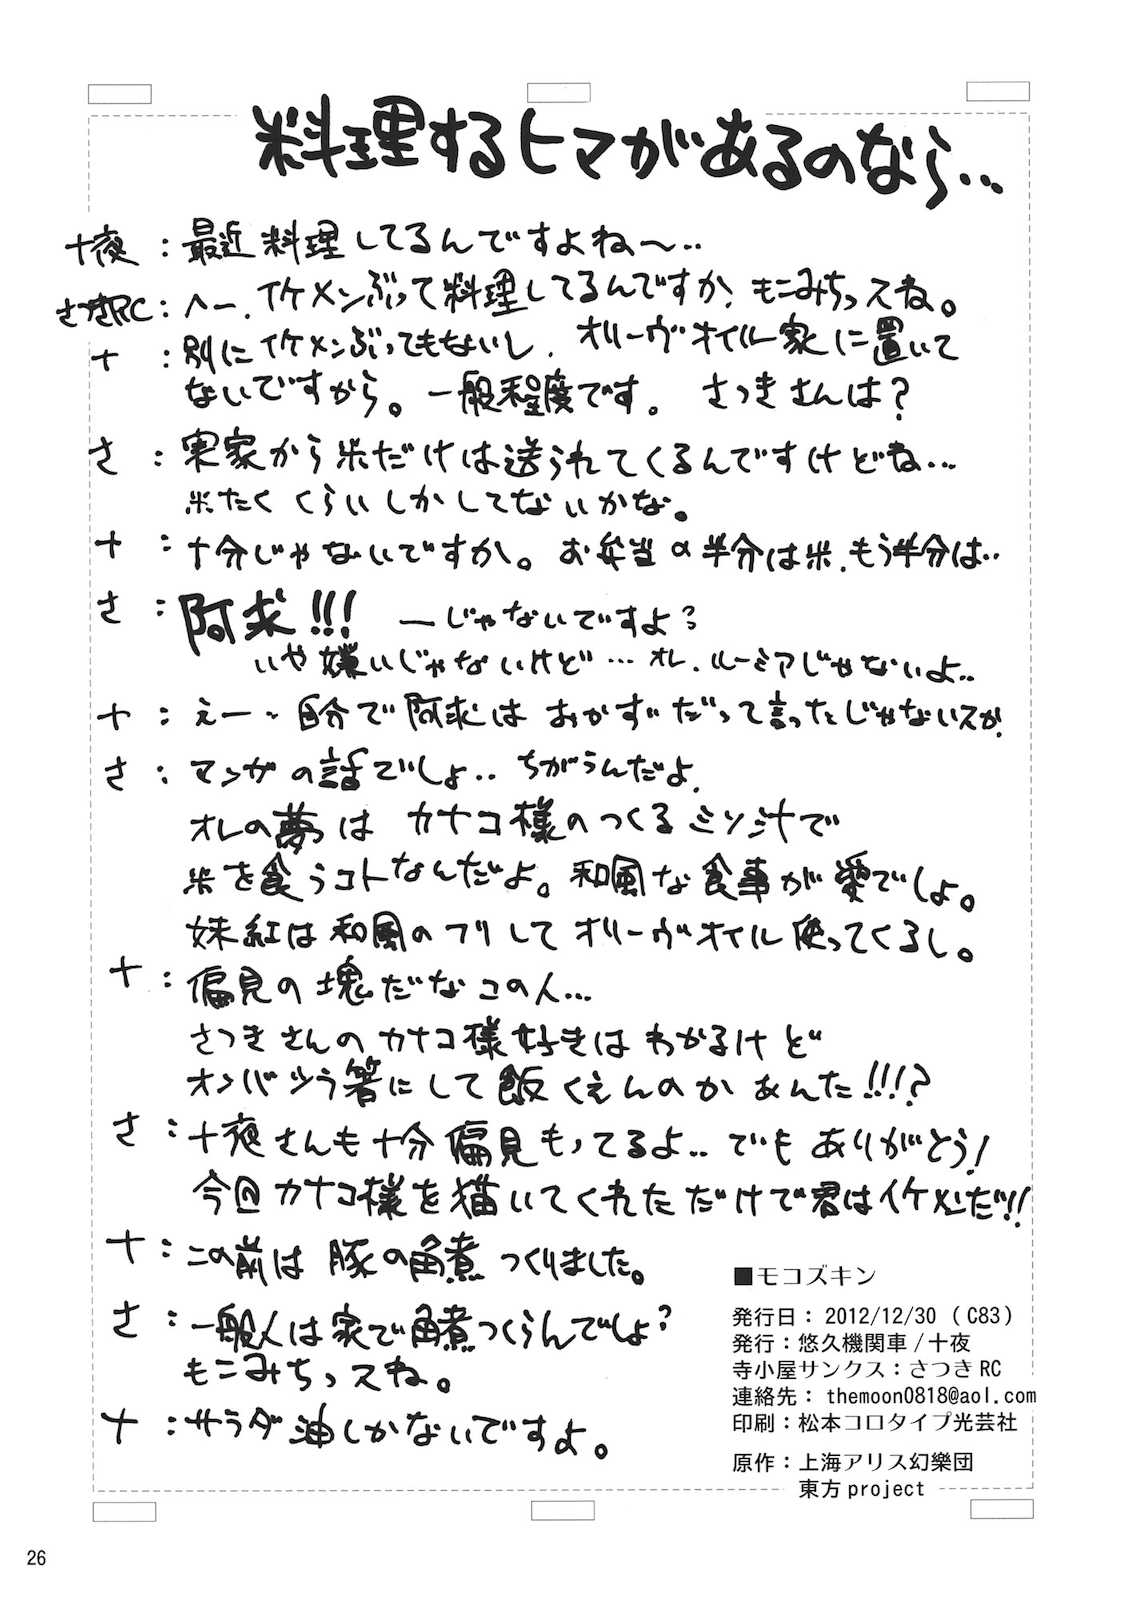 料理するヒマがあるのなら…
十夜：最近料理してるんですよね〜‥
さつきRC：へー、イケメンぶって料理してるんですか、もこみちっスね。
十：別にイケメンぶってもないし、オリーヴオイル家に置いて
ないですから。一般程度です。さつきさんは？
さ：実家から米だけは送られてくるんですけどね…
米たくくらいしかしてないかな。
十：十分じゃないですか。お弁当の半分は米、もう半分は‥
さ：阿求!!! ーじゃないですよ？
いや嫌いじゃないけど…オレ、ルーミアじゃないよ‥
十：えー‥自分で阿求はおかずだって言ったじゃないスか
さ：マンガの話でしょ‥ちがうんだよ、
オレの夢はカナコ様のつくるミソ汁で
米を食うコトなんだよ。和風な食事が愛でしょ。
妹紅は和風のフリしてオリーヴオイル使ってくるし。
十：偏見の塊だなこの人…
さつきさんのカナコ様好きはわかるけど
オンバシラ箸にして飯くえんのかあんた!!!?
さ：十夜さんも十分偏見もってるよ‥でもありがとう！
今回カナコ様を描いてくれただけで君はイケメンだ!!
十：この前は豚の角煮つくりました。
さ：一般人は家で角煮つくらんでしょ？
もこみちっスね。
十：サラダ油しかないですよ。
■モコズキン
発行日：2012/12/30（C83）
発行：悠久機関車/十夜
寺小屋サンクス：さつきRC
連絡先：themoon0818@aol.com
印刷：松本コロタイプ光芸社
原作：上海アリス幻樂団
東方project
26